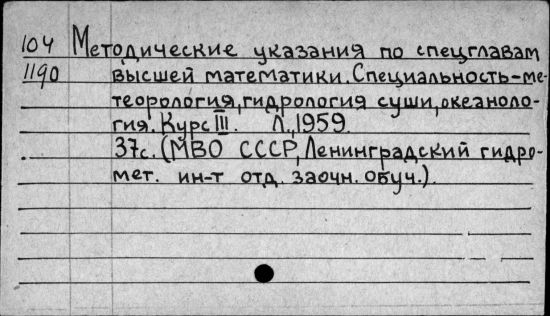 104 Методические указания по спецглавам
1190 высшей математики. Специальность-ме-
теорология, гидрология суши, океаноло-
гия. Курс III. Л., 1959.
37с. (МВО СССР, Ленинградский гидро-
мет. ин-т отд. заочн. обуч.).